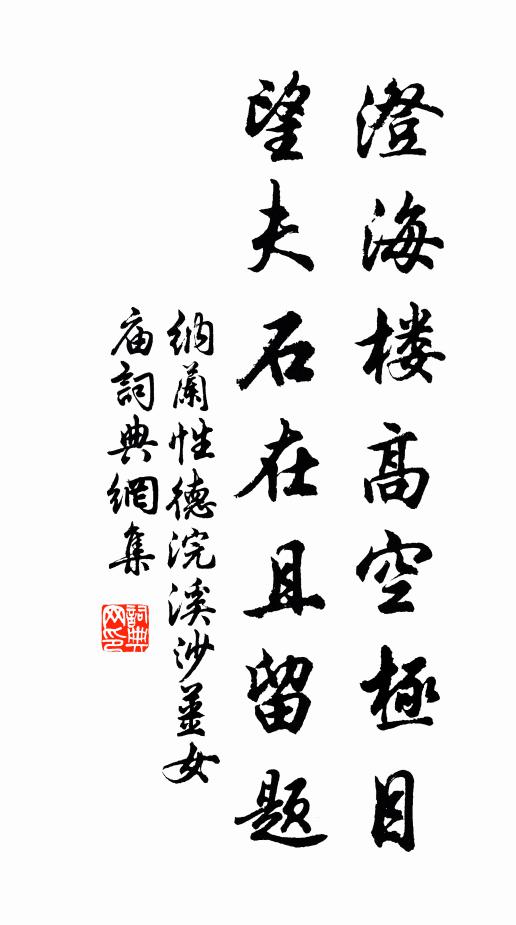 澄海楼高空極目
望夫石在且留題
納蘭性德浣溪沙薑女
庙詞典網集
詞典
网印